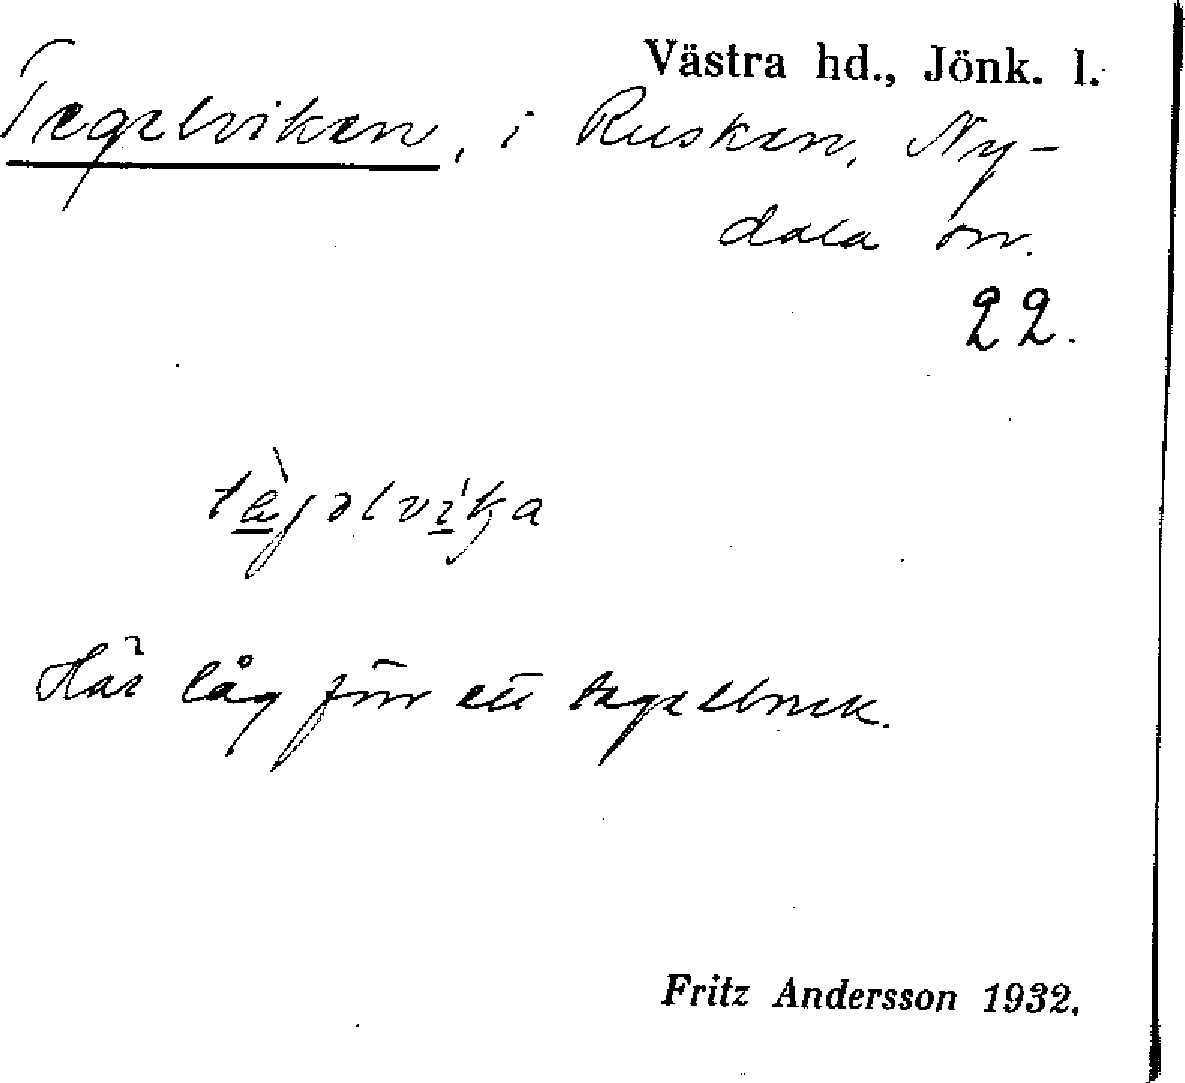 Västra hd., Jönk. l.
Tegelviken, i Rusken, Ny-
dala sn.
22.
tègəlvika
Här låg förr ett tegelbruk.
Fritz Andersson 1932.